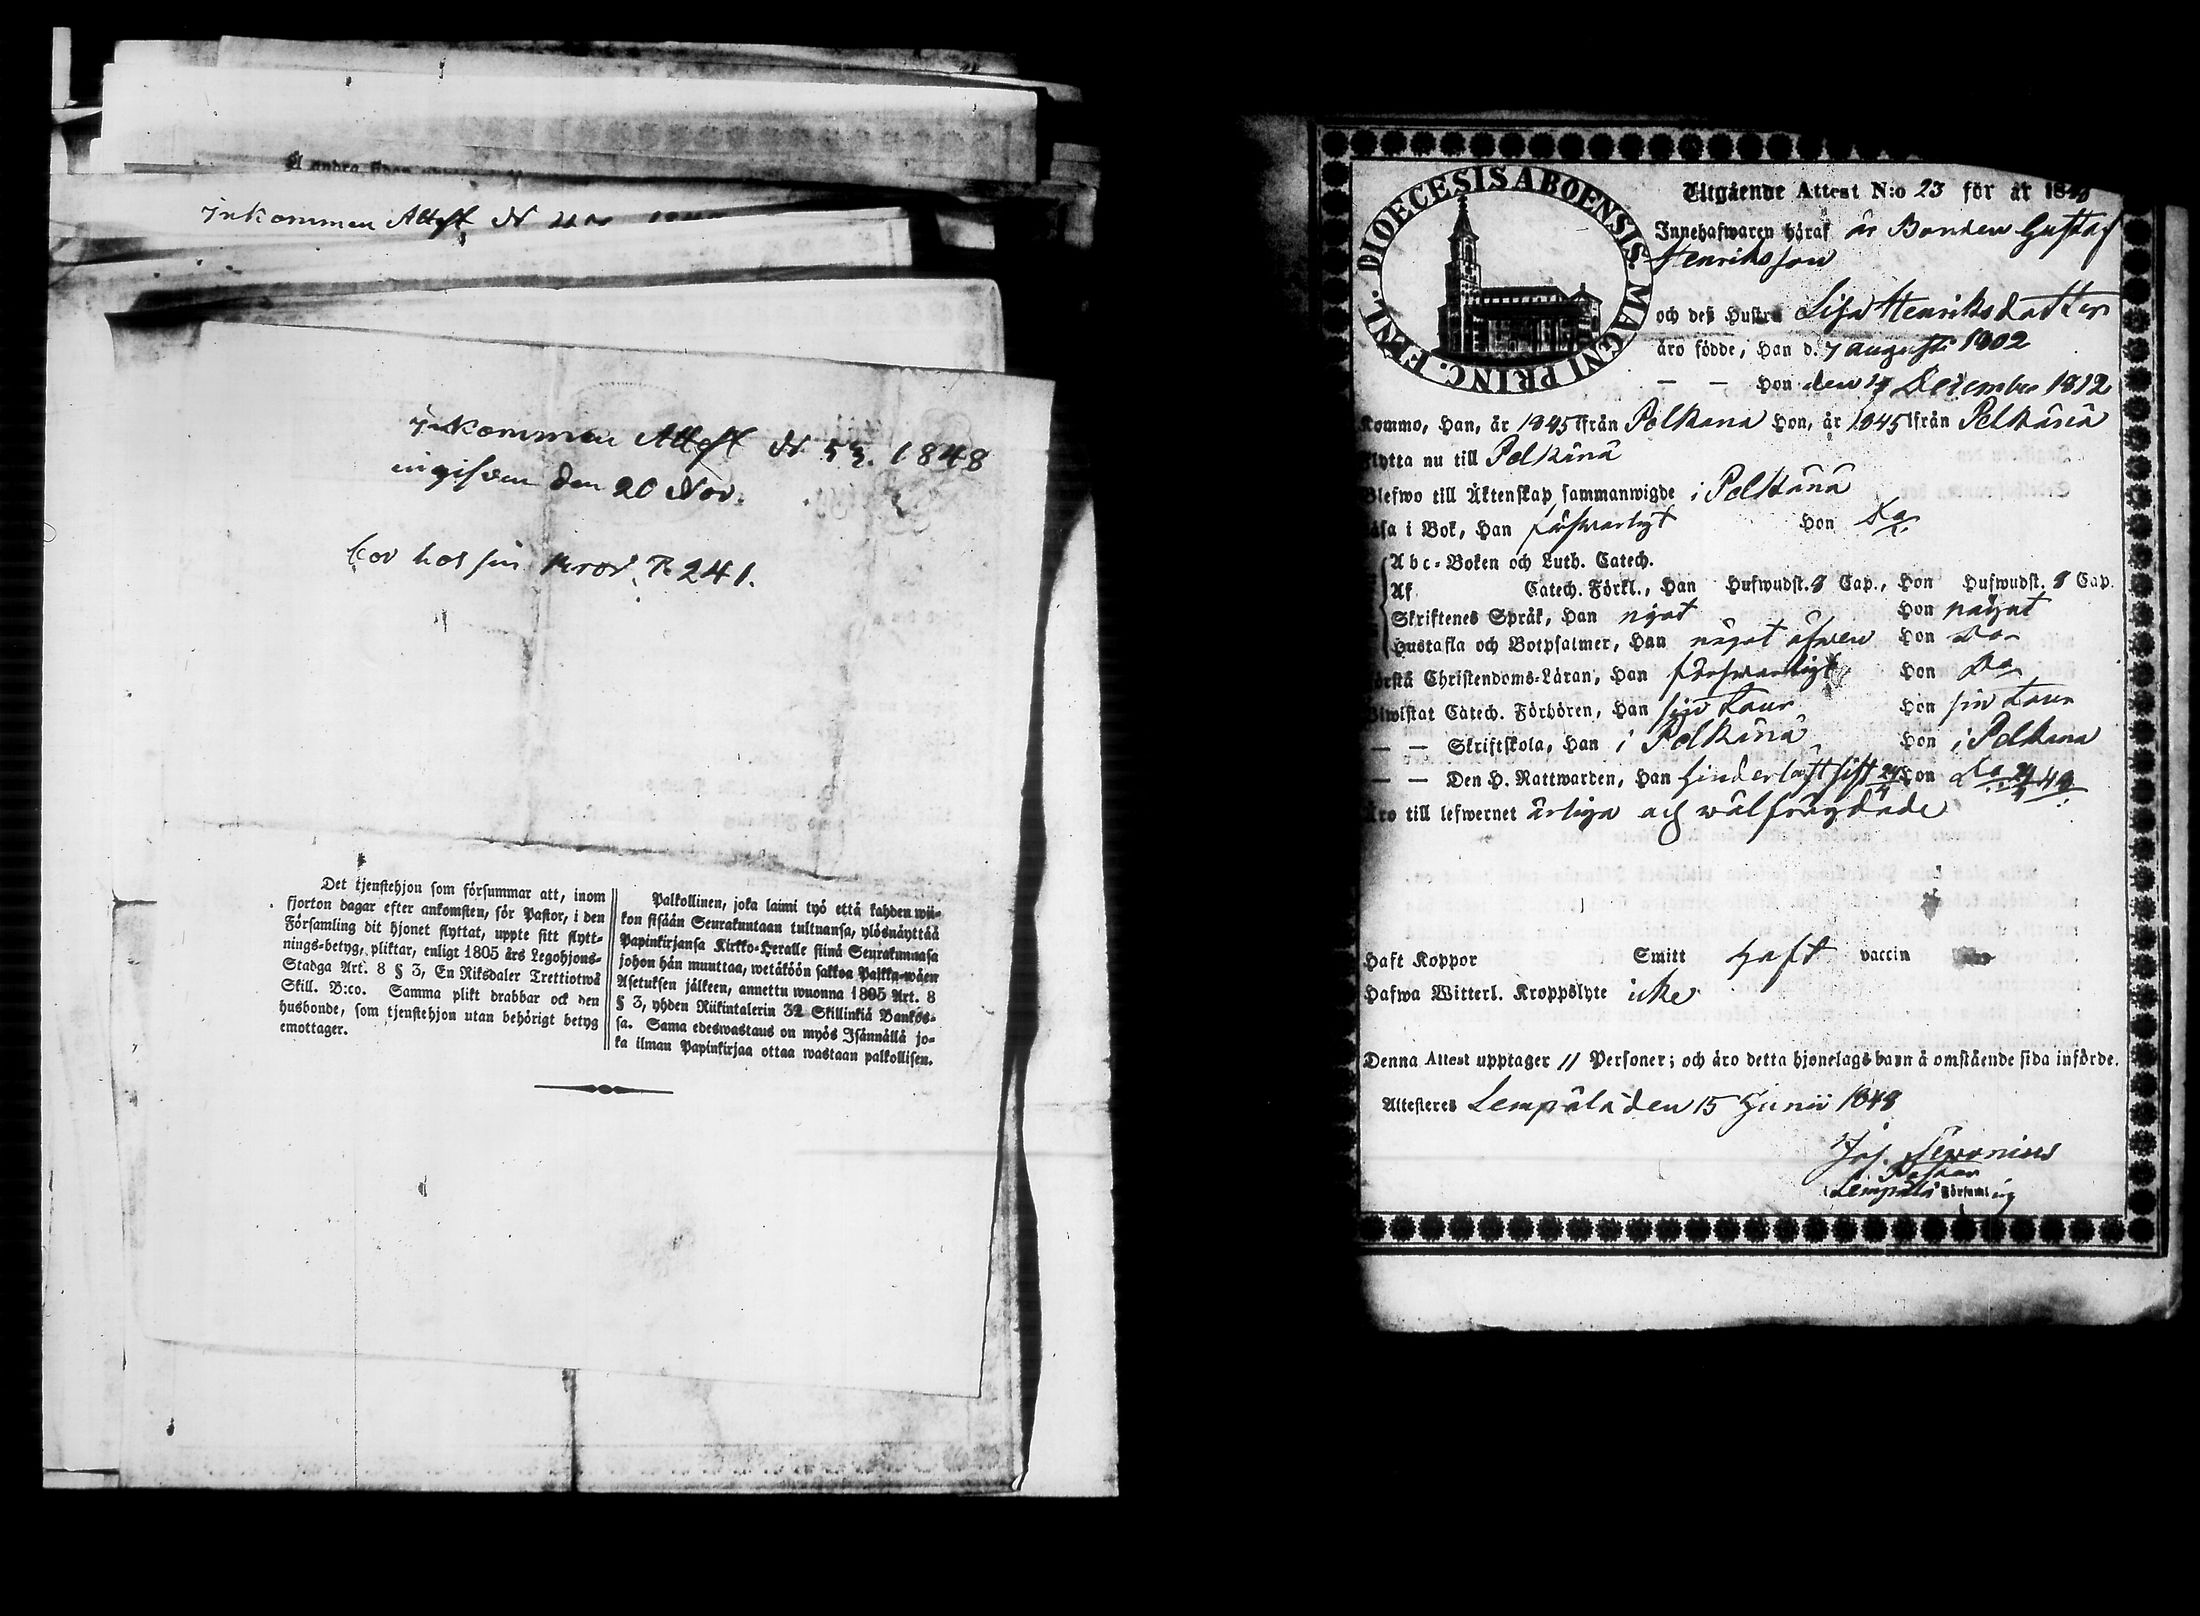 A andra sidan
Inkommen Attest N
Inkommen Attest N 53. 1848
ingifven den 20 Nov.
bor hos sin P. 241.
Det tjenstehjon som försummar att, inom
fjorton dagar efter ankomsten, för Pastor, i den
Församling dit hjonet flyttat, uppte sitt flytt-
nings-betyg, pliktar, enligt 1805 års Legohjons-
Stadga Art. 8 § 3, En Riksdaler Trettiotwå
Skill. B:co. Samma plikt drabbar ock den
husbonde, som tjenstehjon utan behörigt betyg
emottager.
Palkollinen, joka laimi lyö että kahden wii-
kon sisään Seurakuntaan tultuansa, ylösnäyttää
Papinkirjansa Kirkko-Herralle siinä Seurakunnasa
johon hän muuttaa, wetäköön sakkoa Palkka-wäen
Asetuksen jälkeen, annettu wuonna 1805 Art. 8
§ 3, yhden Riikintalerin 32 Skillinkiä Bankos-
sa. Sama edeswastaus on myös Isännällä jo-
ka ilman Papinkirjaa ottaa wastaan palkollisen.
DIOECESIS ABOENSIS. MAGNI PRINC. FENL.
Utgående Attest N:o 23 för år 1848
Innehafwaren häraf är Bonden Gustaf
Henriksson
och deß Hustru Lisa Henriksdotter
äro födde, Han d. 7 augusti 1802
— — Hon den 14 December 1812
Kommo, Han, år 1845 ifrån Pelkänä Hon, år 1845 ifrån Pelkänä
Flytta nu till Pelkänä
Blefwo till Äktenskap sammanwigde i Pelkänä
Läsa i Bok, Han försvarligt Hon Do
Abc-Boken och Luth. Catech.
Af Catech. Förkl., Han Hufwudst. 8 Cap., Hon Hufwudst. 8 Cap.
Skriftenes Språk, Han något Hon något
Hustafla och Botpsalmer, Han något äfven Hon Do
Förstå Christendoms-Läran, Han försvarligt Hon Do
Biwistat Catech. Förhören, Han sin tour Hon sin tour
— — Skriftskola, Han i Pelkänä Hon i Pelkänä
— — Den H. Nattwarden, Han hinderlöst sist 24/4 Hon Do 24/4 48
Äro till lefwernet ärliga och wälfrägdade
Haft Koppor Smitt haft vaccin
Hafwa Witterl. Kroppslyte icke
Denna Attest upptager 11 Personer; och äro detta hjonelags barn å omstående sida införde.
Attesteras Lempälä den 15 Junii 1848
Jos.
Pastor
Lempälä Församling